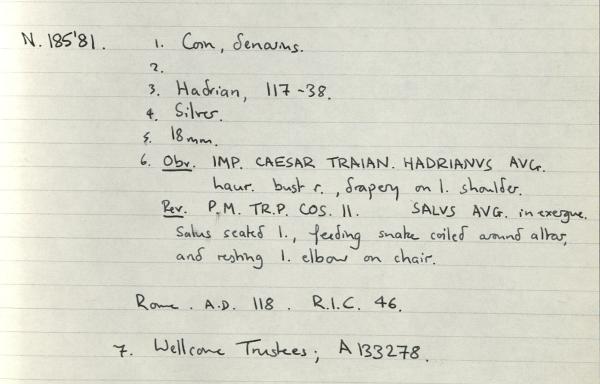 N. 185'81. 1. Coin, denarius.
2.
3. Hadrian, 117-38.
4. Silver.
5. 18mm.
6. Obv. IMP. CAESAR TRAIAN. HADRIANVS AVG.
laur. bust r., drapery on l. shoulder.
Rev. P.M. TR.P. COS. II. SALVS AVG. in exergue.
Salus seated l., feeding snake coiled around altar,
and resting l. elbow on chair.
Rome. A.D. 118. R.I.C. 46.
7. Wellcome Trustees; A133278.